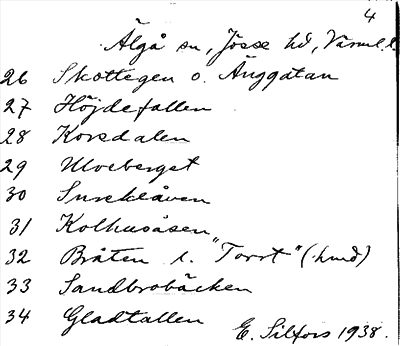 4
Älgå sn, Jösse hd, Värml. l.
26 Skottegen o. Änggatan
27 Höjdefallen
28 Korsdalen
29 Ulveberget
30
31 Kolhusåsen
32 Bråten l. "Torrt" (hmd)
33 Sandbrobäcken
34 Gladtallen
E. Silfors 1938.